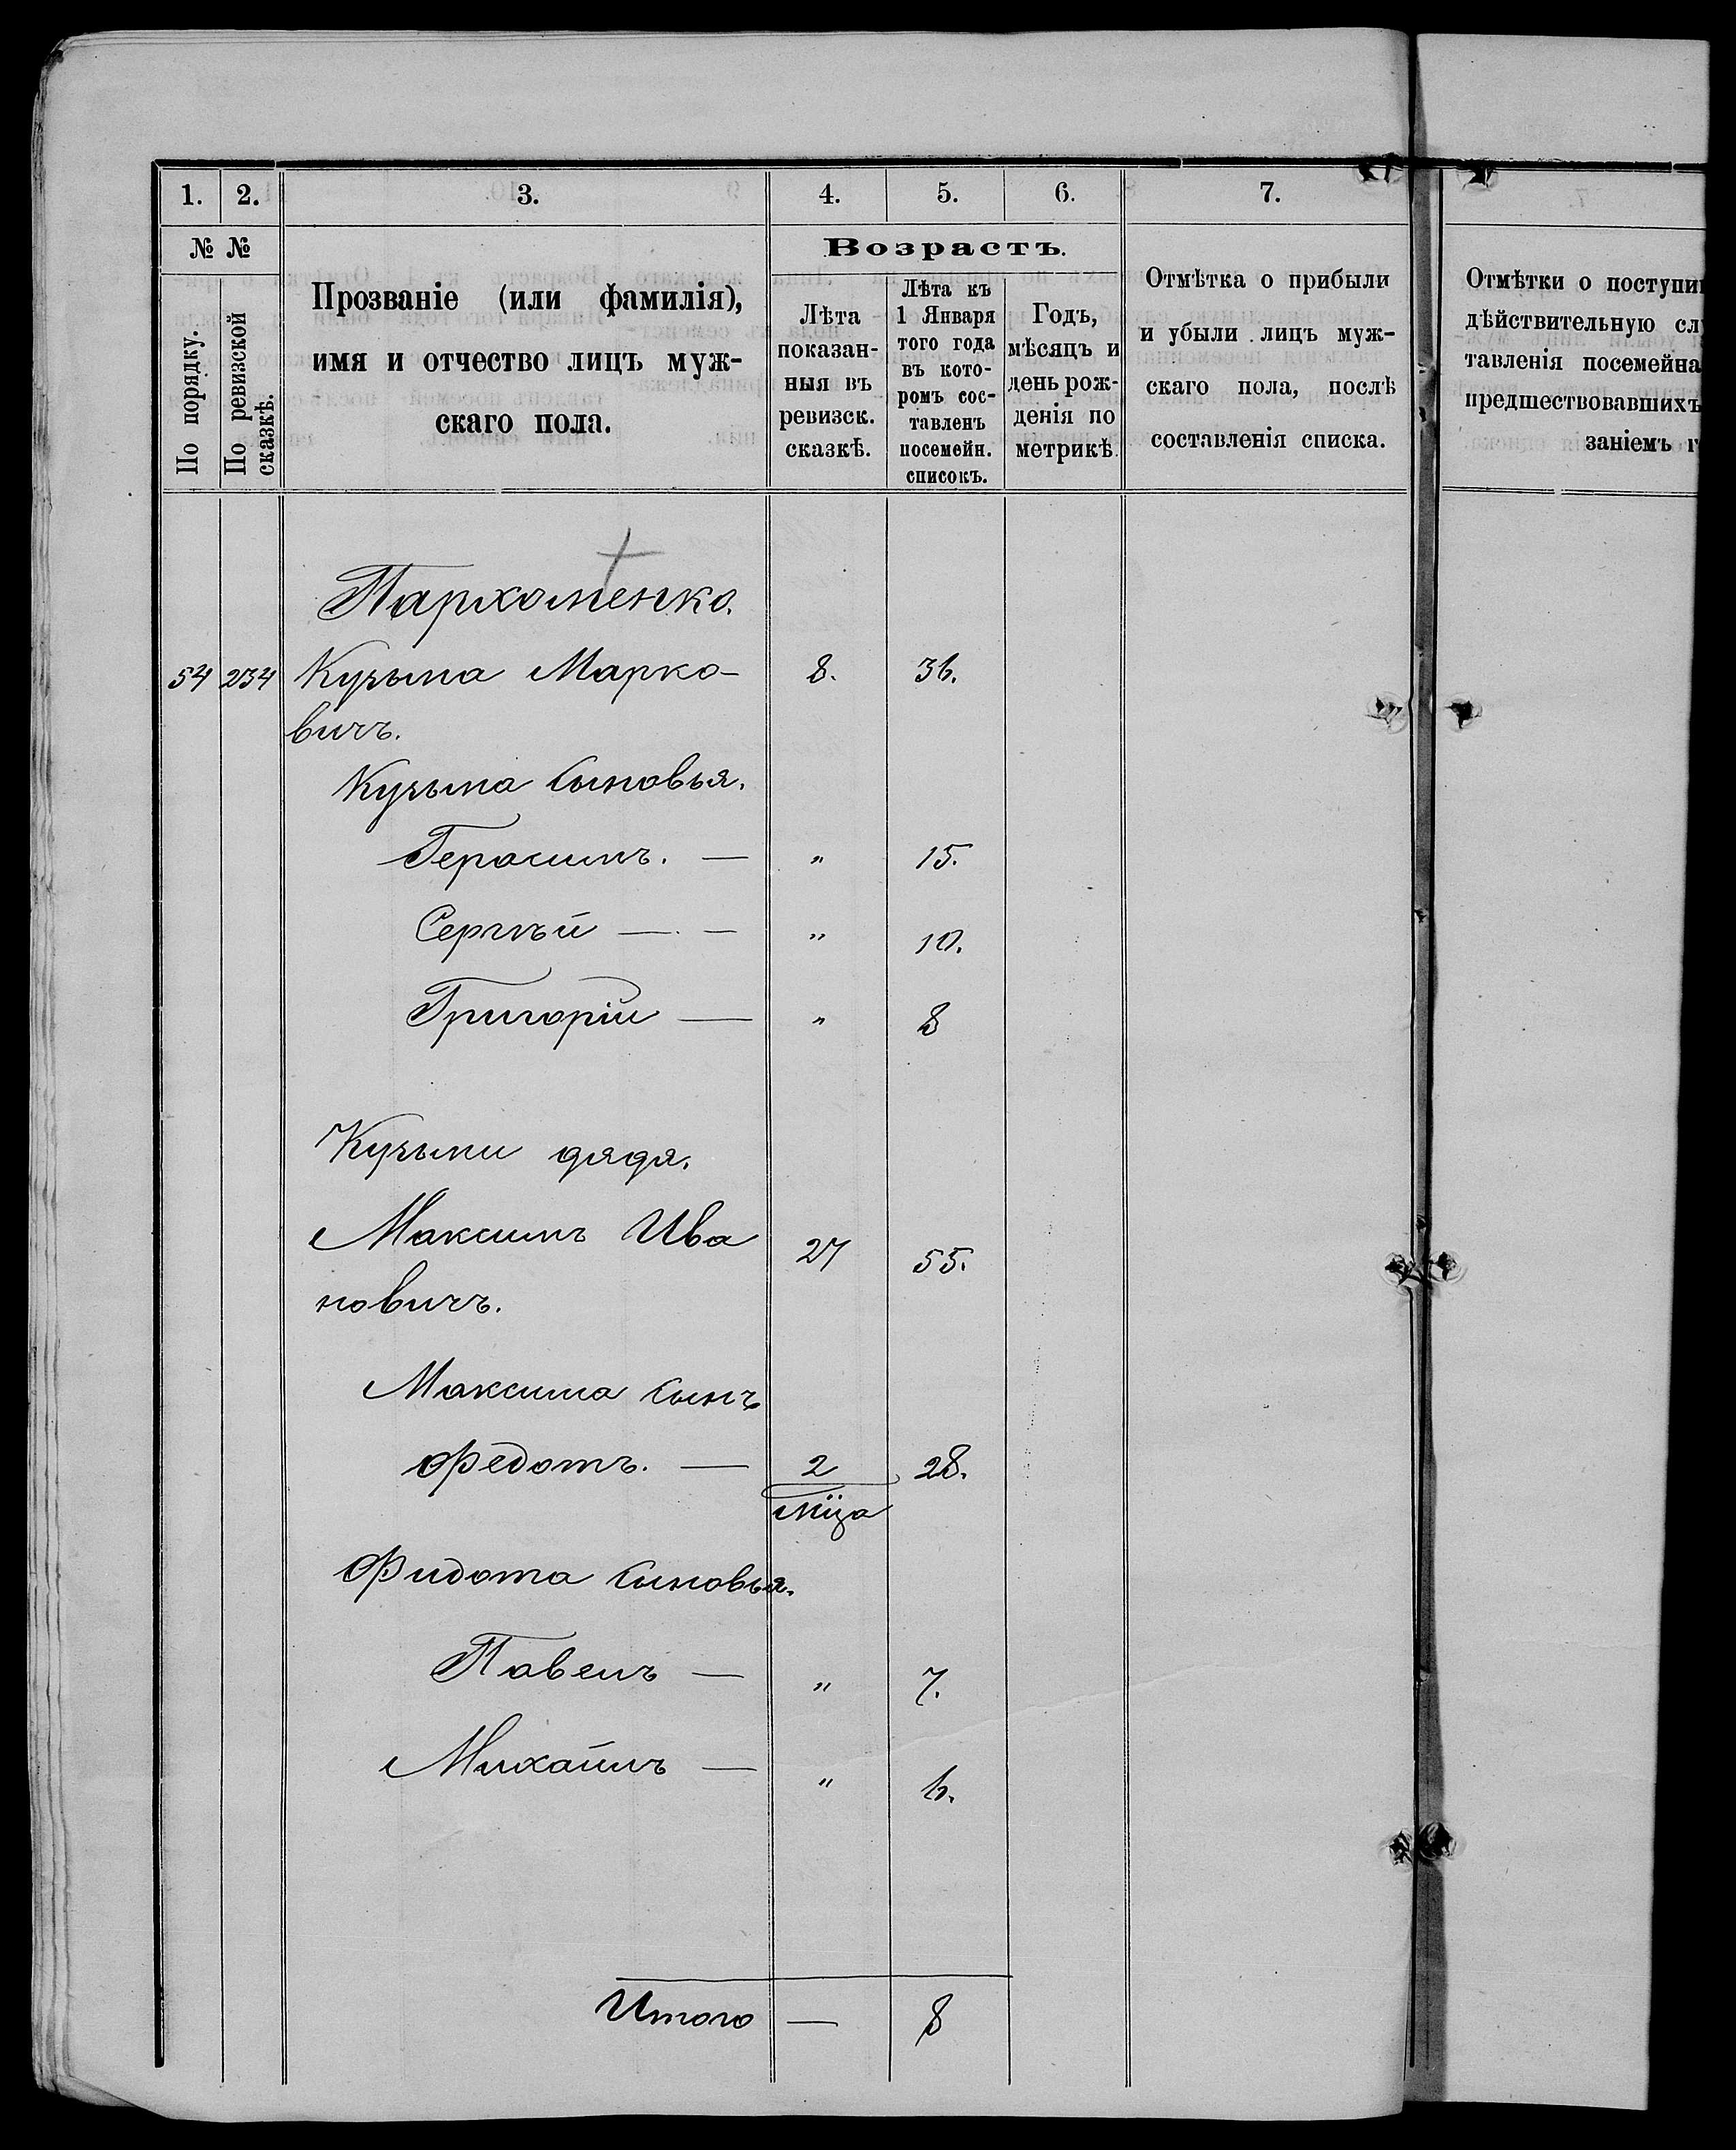 1. 2. 3. 4. 5. 6. 7.
№ №
По порядку.
По ревизской сказкѣ.
Прозваніе (или фамилія),
имя и отчество лицъ муж-
скаго пола.
Возрастъ.
Лѣта
показан-
ныя въ
ревизск.
сказкѣ.
Лѣта къ
1 Января
того года
въ кото-
ромъ сос-
тавленъ
посемейн.
списокъ.
Годъ,
мѣсяцъ и
день рож-
денія по
метрикѣ.
Отмѣтка о прибыли
и убыли лицъ муж-
скаго пола, послѣ
составленія списка.
Отмѣтки о поступи
дѣйствительную сл
тавленія посемейна
предшествовавшихъ
заніемъ г
Пархоменко.
54 234 Кузьма Марко- 8. 36.
вичъ.
Кузьма сыновья.
Герасимъ. — " 15.
Сергѣй — " 10.
Григорій — " 8
Кузьми дядя.
Максимъ Ива 27 55.
новичъ.
Максима сынъ
Федотъ. — 2 28.
мца
Фидота сыновья.
Павелъ — " 7.
Михаилъ — " 6.
Итого — 8